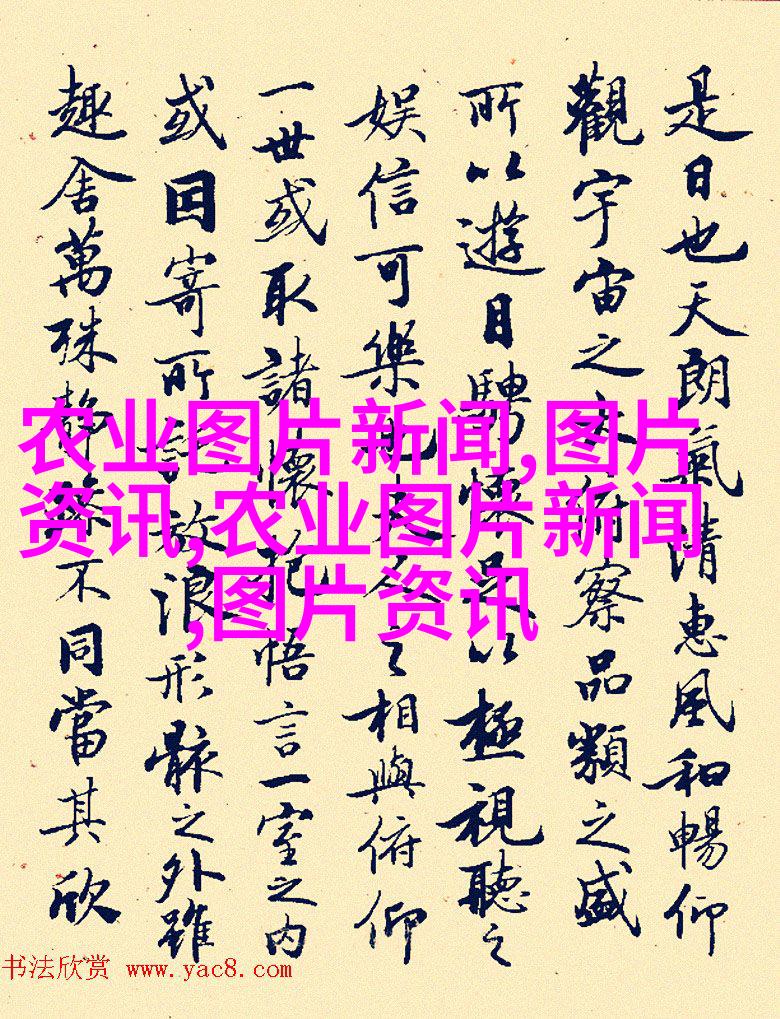 是日也天朗氣清惠風和暢仰
觀宇宙之大俯察品類之盛
所以遊目騁懷足以極視聽之
娱信可樂也夫人之相與俯仰
一世或取諸懷抱悟言一室之内
或因寄所託放浪形骸之外雖
趣舍萬殊静躁不同當其欣
农业图片新闻,图片
资讯,农业图片新闻
,图片资讯
书法欣赏 www.yac8.com